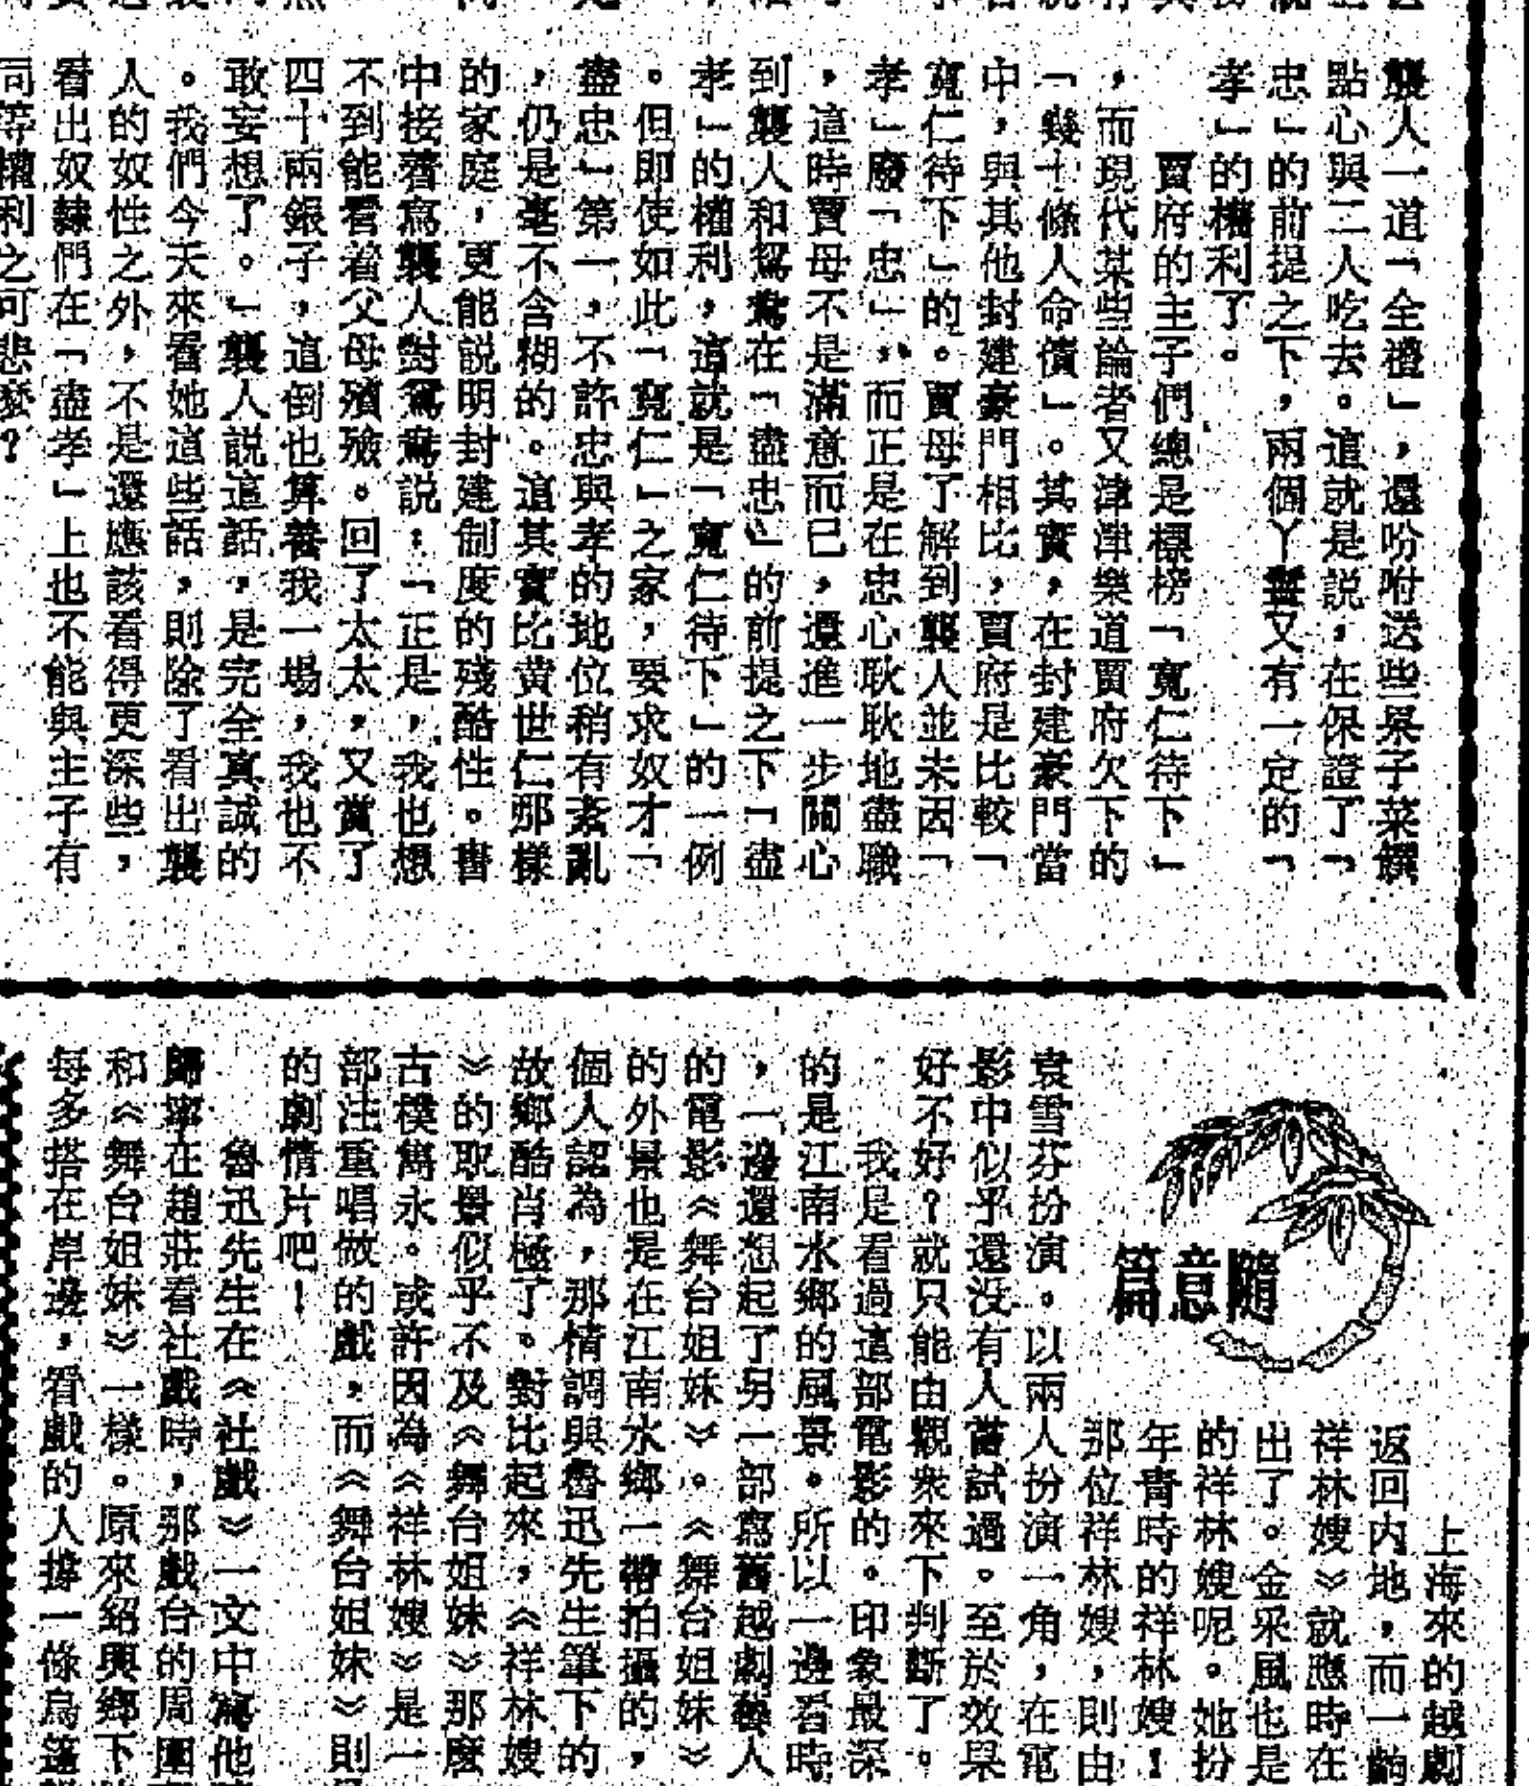 襲人一道「全禮」，還吩咐送些果子菜饌
點心與二人吃去。這就是説，在保證了「
忠」的前提之下，兩個丫鬟又有一定的「
孝」的權利了。
賈府的主子們總是標榜「寬仁待下」
，而現代某些論者又津津樂道賈府欠下的
「幾十條人命債」。其實，在封建豪門當
中，與其他封建豪門相比，賈府是比較「
寬仁待下」的。賈母了解到襲人並未因「
孝」廢「忠」，而正是在忠心耿耿地盡職
，這時賈母不是滿意而已，還進一步關心
到襲人和鴛鴦在「盡忠」的前提之下「盡
孝」的權利，這就是「寬仁待下」的一例
。但即使如此「寬仁」之家，要求奴才「
盡忠」第一，不許忠與孝的地位稍有紊亂
，仍是毫不含糊的。這其實比黄世仁那樣
的家庭，更能説明封建制度的殘酷性。書
中接着寫襲人對鴛鴦説：「正是，我也想
不到能看着父母殯殮。回了太太，又賞了
四十兩銀子，這倒也算養我一場，我也不
敢妄想了。」襲人説這話，是完全真誠的
。我們今天來看她這些話，則除了看出襲
人的奴性之外，不是還應該看得更深些，
看出奴隸們在「盡孝」上也不能與主子有
同等權利之可悲麼？
隨意篇
上海來的越劇
返回内地，而一齣
祥林嫂》就應時在
出了。金采風也是
的祥林嫂呢。她扮
年青時的祥林嫂！
那位祥林嫂，則由
袁雪芬扮演。以兩人扮演一角，在電
影中似乎還没有人嘗試過。至於效果
好不好？就只能由觀衆來下判斷了。
我是看過這部電影的。印象最深
的是江南水鄉的風景。所以一邊看時
，一邊還想起了另一部寫舊越劇藝人
的電影《舞台姐妹》。《舞台姐妹》
的外景也是在江南水鄉一帶拍攝的，
個人認為，那情調與魯迅先生筆下的
故鄉酷肖極了。對比起來，《祥林嫂
》的取景似乎不及《舞台姐妹》那麼
古樸雋永。或許因為《祥林嫂》是一
部注重唱做的戲，而《舞台姐妹》則
的劇情片吧！
魯迅先生在《社戲》一文中寫他
歸寧在趙莊看社戲時，那戲台的周圍
和《舞台姐妹》一樣。原來紹興鄉下
每多搭在岸邊，看戲的人撐一條烏篷